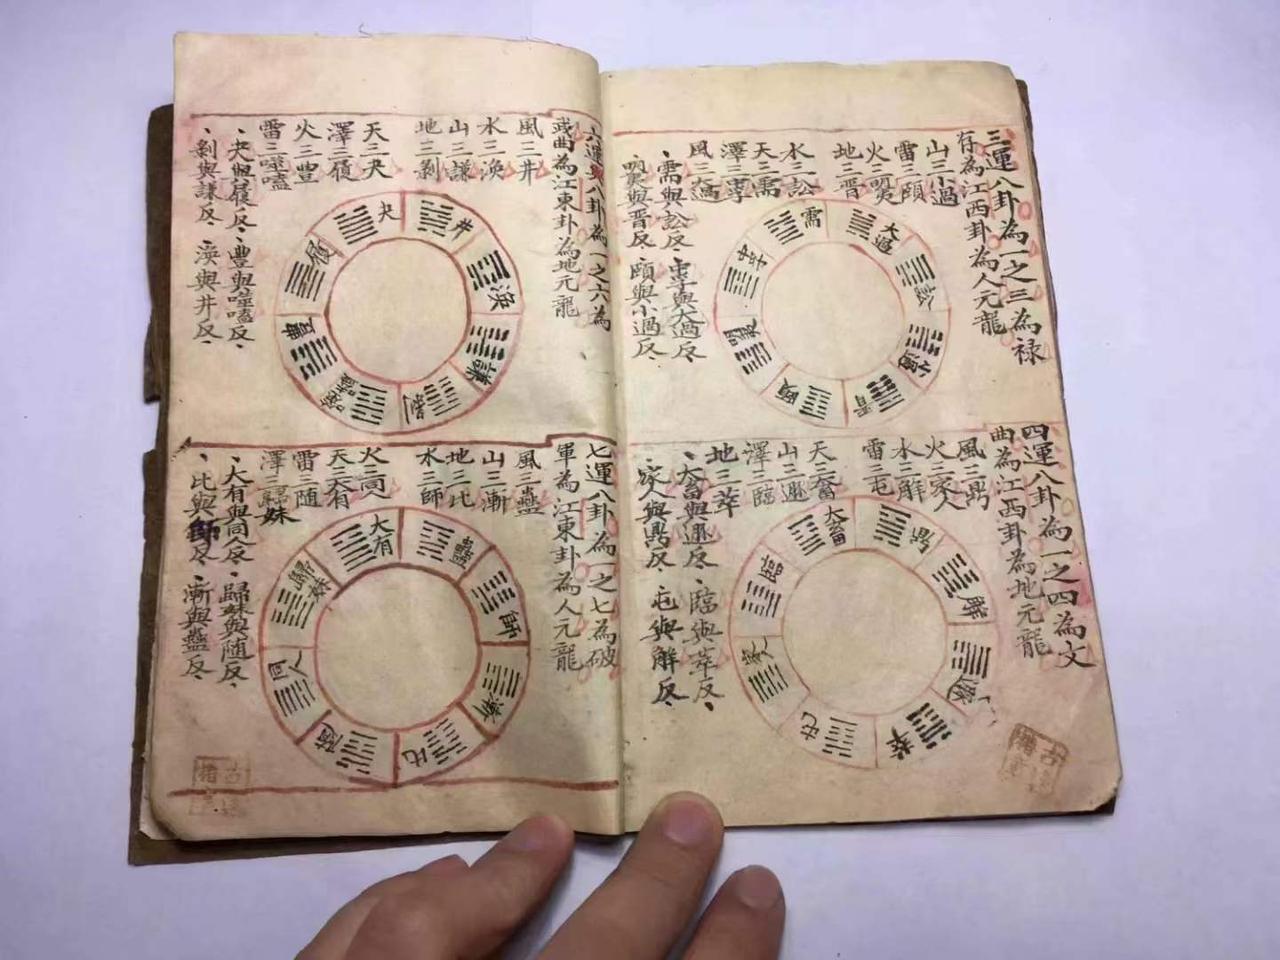 三運八卦為一之三為祿
存為江西卦為人元龍
山三小過
雷三頤
火三
地三晋
水三訟
天三需
澤三
風三大過
需與訟反
與大過反
與晋反
頤與小過反
需
大過
訟
小過
晋
頤
四運八卦為一之四為文
曲為江西卦為地元龍
風三鼎
火三家人
水三解
雷三屯
天三大畜
山三遯
澤三臨
地三萃
大畜與遯反
臨與萃反
家人與鼎反
屯與解反
大畜
解
萃
屯
臨
六運與八卦為一之六為
武曲為江東卦為地元龍
風三井
水三渙
山三謙
地三剝
天三夬
澤三履
火三豐
雷三噬嗑
夬與履反
豐與噬嗑反
剝與謙反
渙與井反
夬
井
渙
謙
剝
噬嗑
豐
履
七運八卦為一之七為破
軍為江東卦為人元龍
風三蠱
山三漸
地三比
水三師
火三同人
天三大有
雷三随
澤三歸妹
大有與同人反
歸妹與随反
比與師反
漸與蠱反
大有
蠱
師
漸
比
随
同人
歸妹